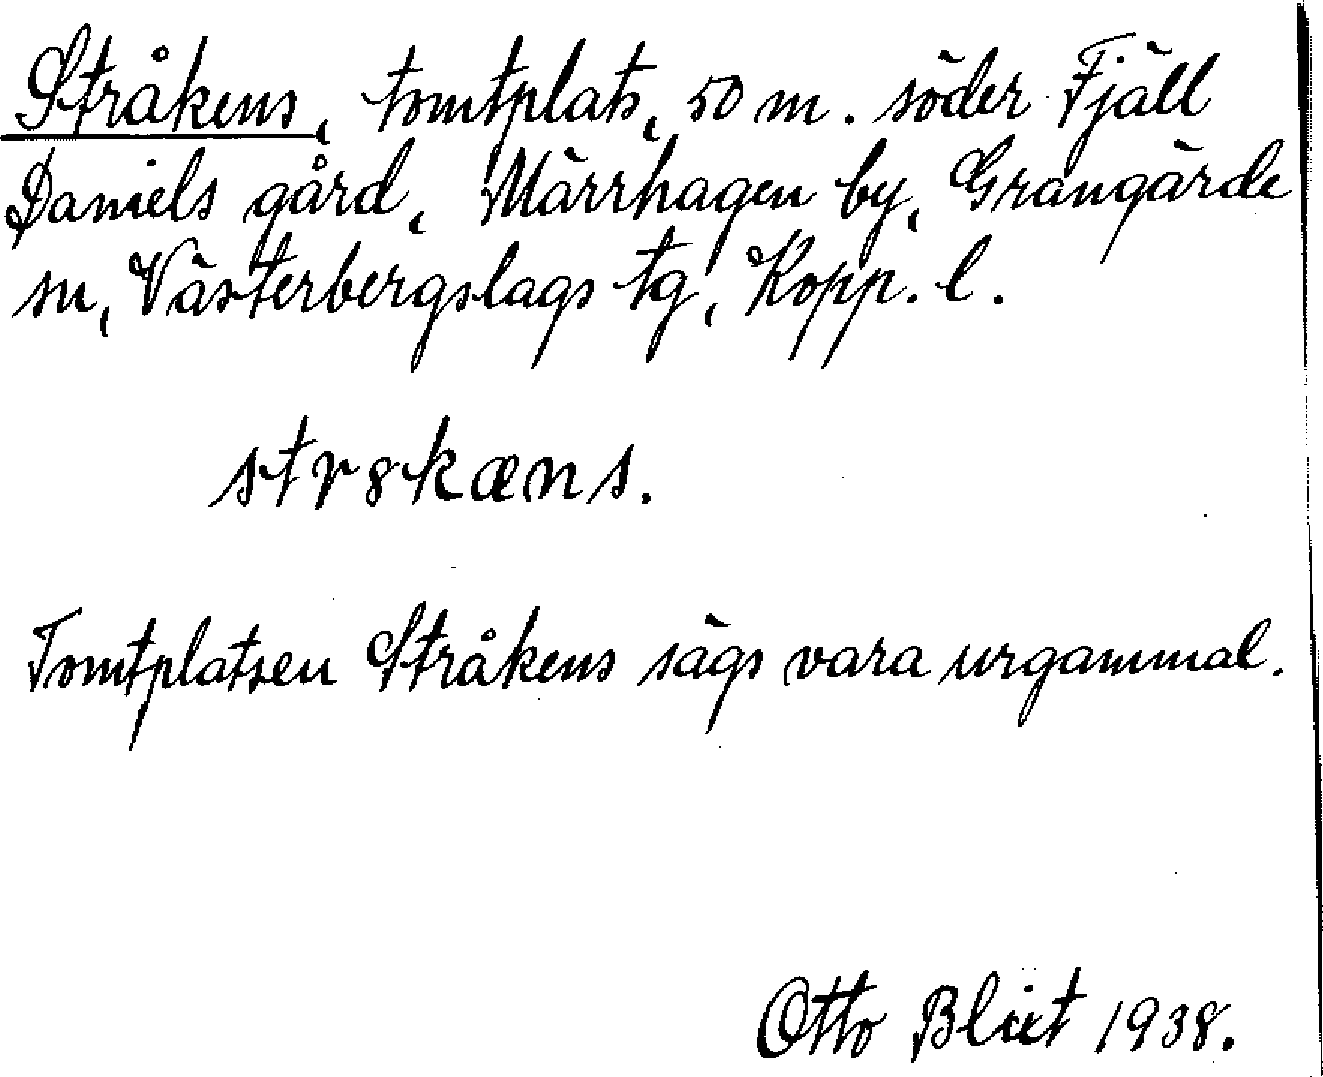 Stråkens, tomtplats, 50 m. söder Fjäll
Daniels gård, Märrhagen by, Grangärde
sn, Västerbergslags tg, Kopp. l.
str8kæns.
Tomtplatsen Stråkens sägs vara urgammal.
Otto Blixt 1938.